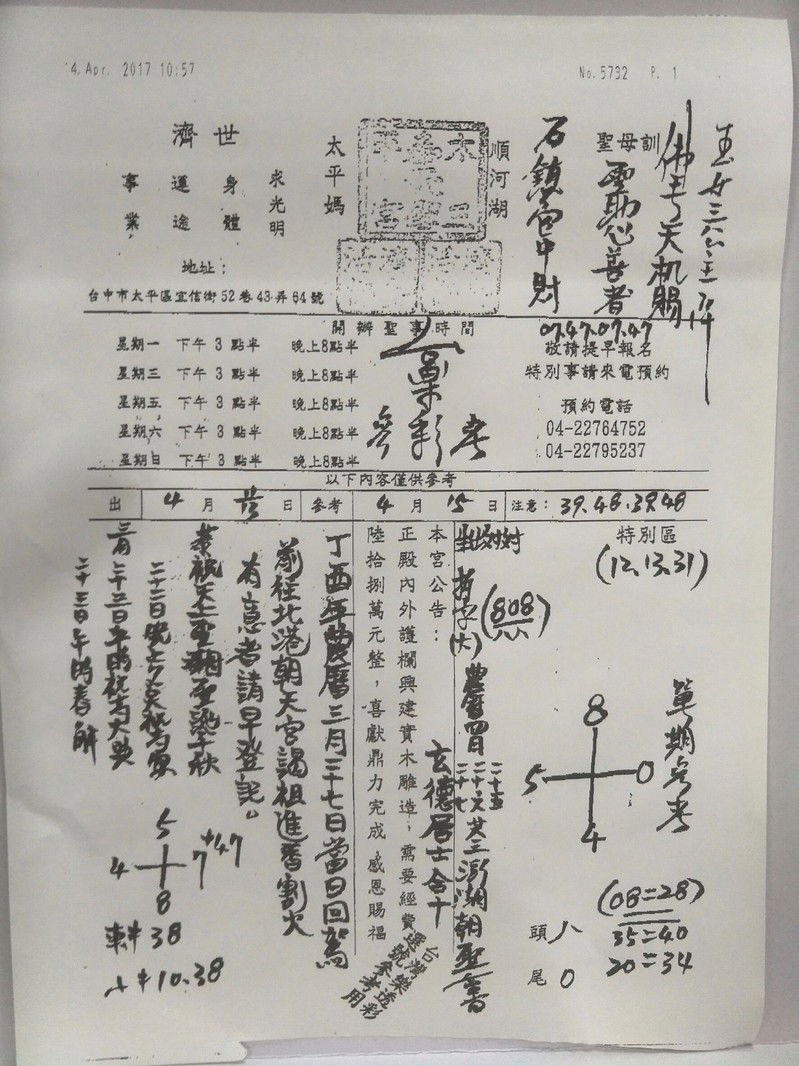 4. Apr. 2017 10:57
No. 5732 P. 1
聖母訓
佛弓天机賜
石鎮宮中財
順河湖
太平媽
濟世
求光明
身體
運途
事業
地址：
台中市太平區宜信街52巷43弄64號
開辦聖事時間
星期一 下午3點半 晚上8點半
星期三 下午3點半 晚上8點半
星期五 下午3點半 晚上8點半
星期六 下午3點半 晚上8點半
星期日 下午3點半 晚上8點半
07.47.07.47
敬請提早報名
特別事請來電預約
預約電話
04-22764752
04-22795237
參彩考
以下內容僅供參考
出 4月 日 參考 4月15日 注意：39.48.39.48
特別區
(12.13.31)
單期參考
8
5 0
4
(08=28)
35=40
20=34
頭 八
尾 0
(808)
玄德居士合十
本宮公告：
正殿內外護欄興建實木雕造，需要經費
陸拾捌萬元整，喜獻鼎力完成，感恩賜福
台灣樂透彩
選號參考用
丁酉年農曆三月二十七日當日回駕
前往北港朝天宮謁祖進香割火
有意者請早登記。
恭祝天上聖母聖誕千秋
5
4 7 +47
8
38
10.38